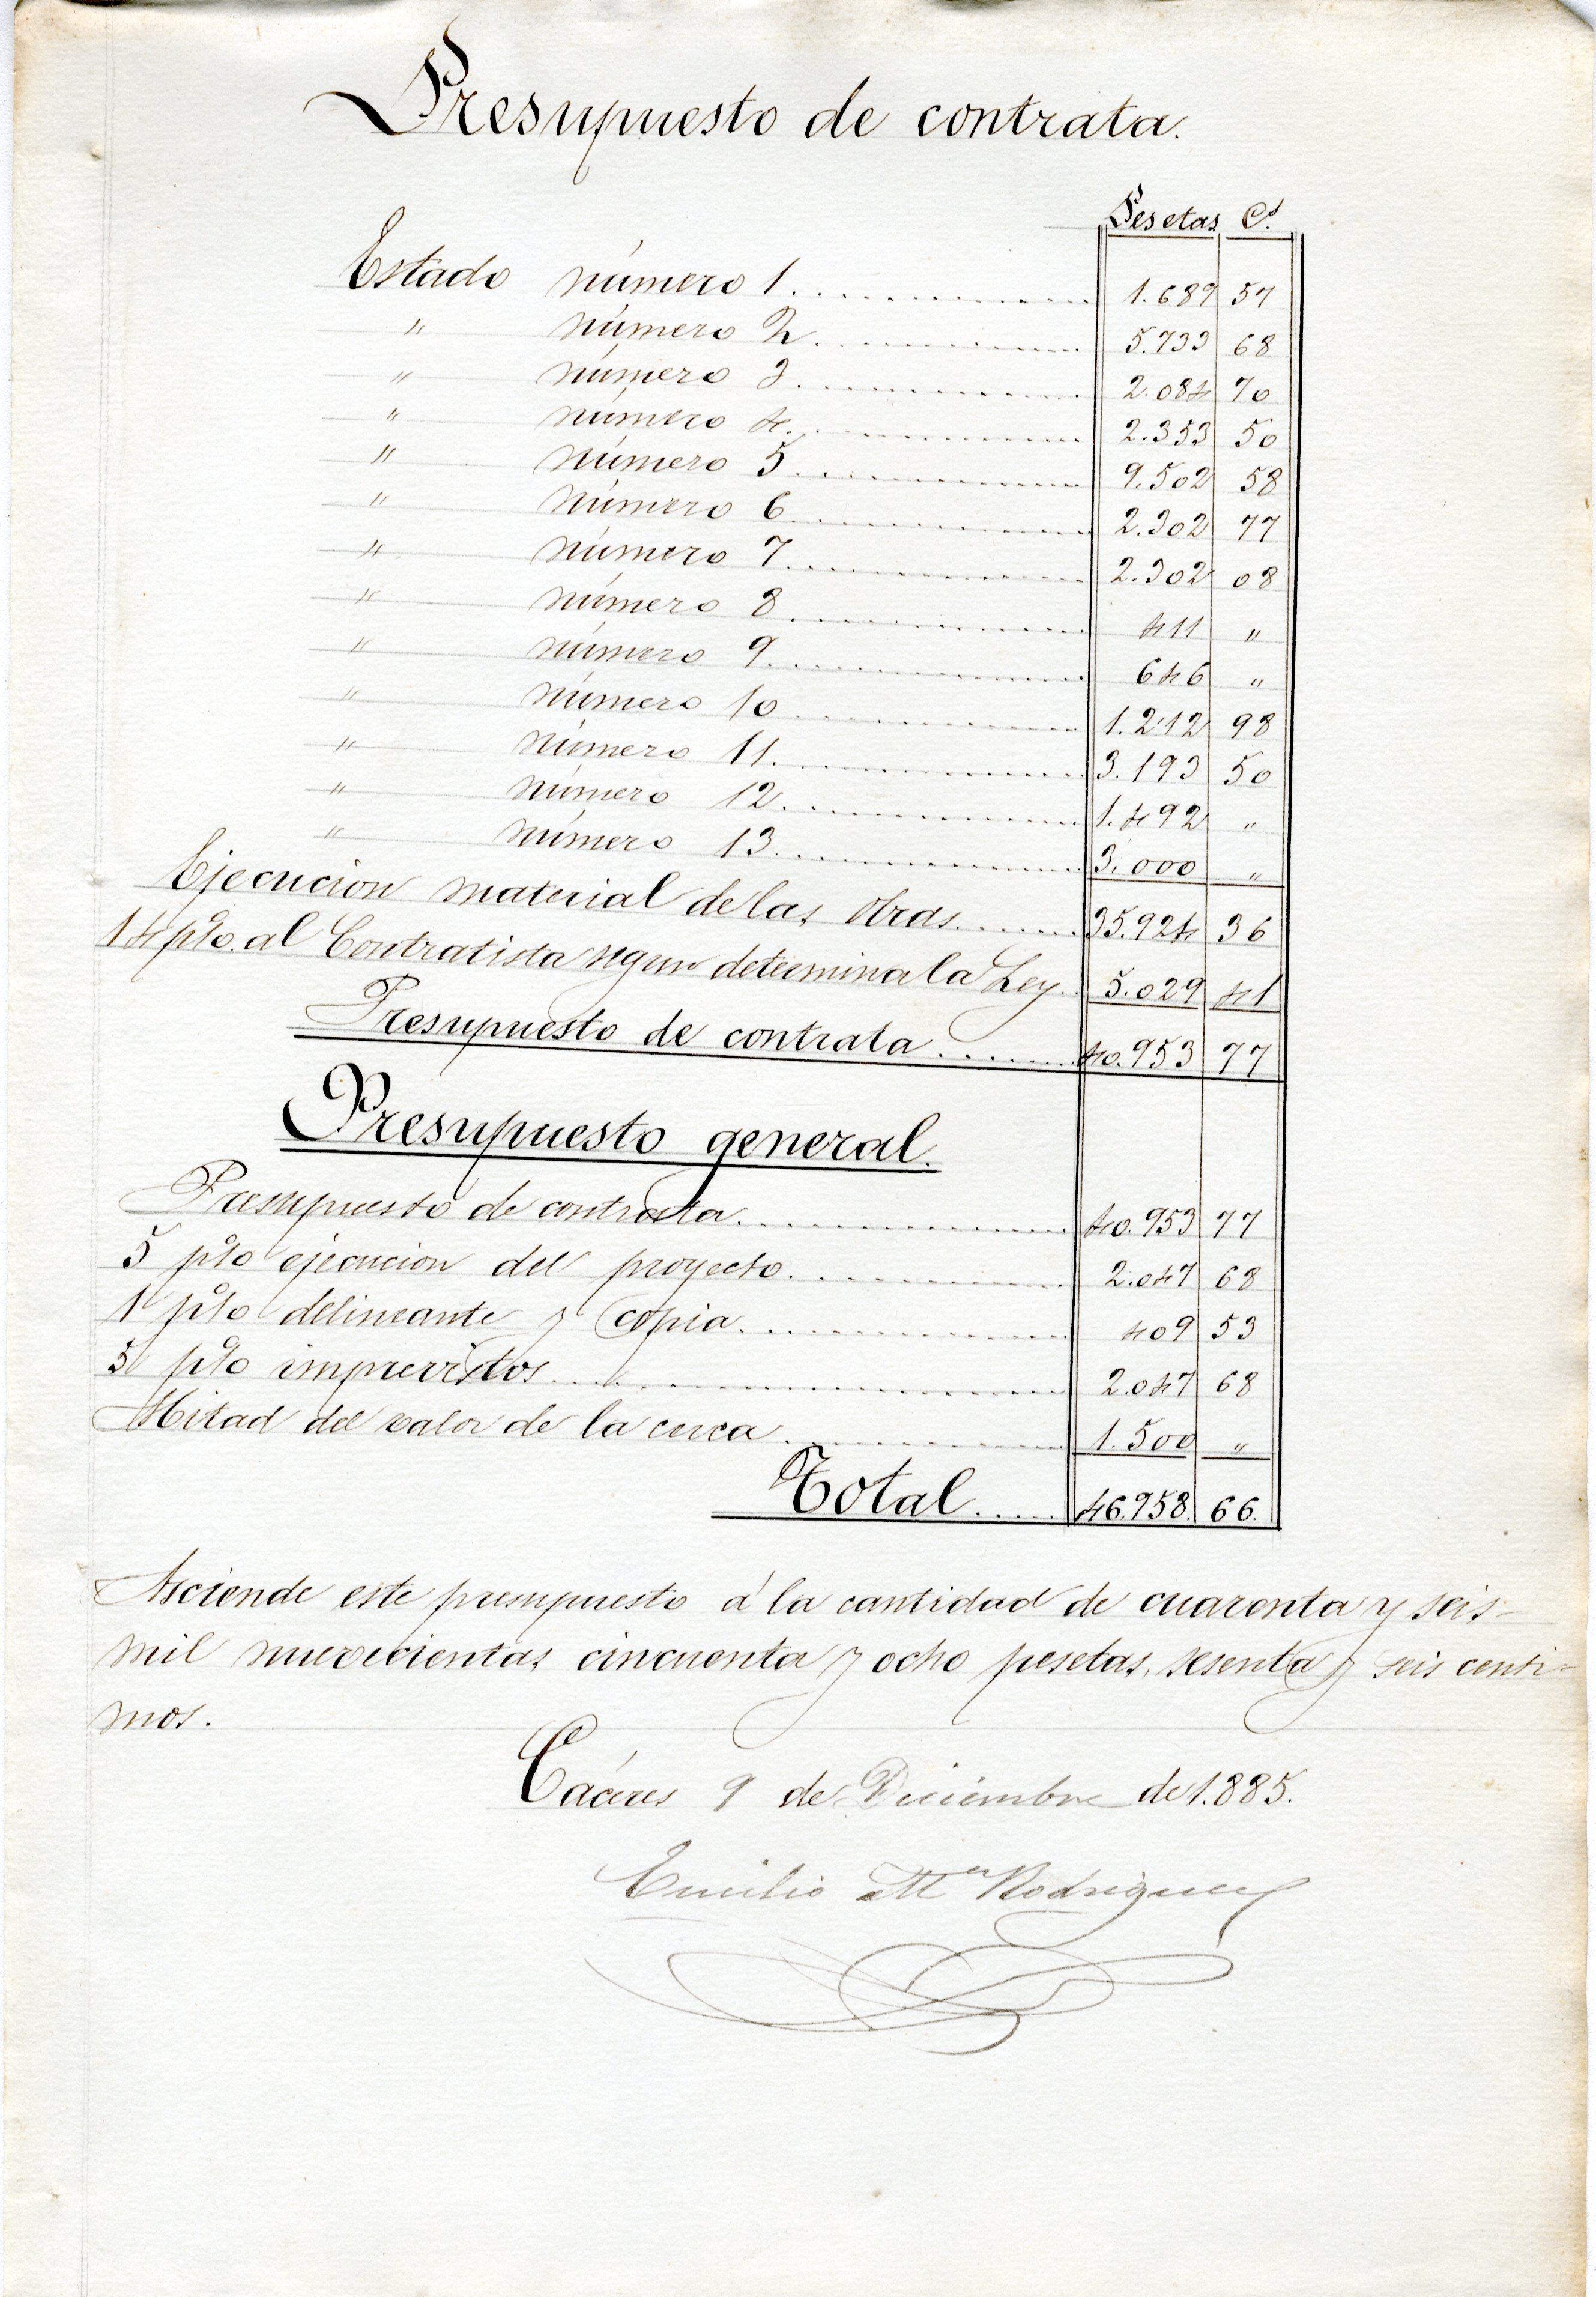 Presupuesto de contrata.
Pesetas Cs.
Estado número 1. 1.689 57
" número 2. 5.733 68
" número 3. 2.084 70
" número 4. 2.353 50
" número 5 9.502 58
" número 6 2.302 77
" número 7. 2.302 08
" número 8 411 "
" número 9. 646 "
" número 10 1.212 98
" número 11. 3.193 50
" número 12. 1.492 "
" número 13. 3.000 "
Ejecucion material de las obras. 35.924 36
14 p%. al Contratista segun determina la Ley. 5.029 41
Presupuesto de contrata 40.953 77
Presupuesto general.
Presupuesto de contrata. 40.953 77
5 p%o ejecucion del proyecto. 2.047 68
1 p%o delineante y copia. 409 53
5 p%o imprevistos. 2.047 68
Mitad del valor de la cerca 1.500 "
Total 46.958. 66.
Asciende este presupuesto á la cantidad de cuarenta y seis
mil nuevecientas cincuenta y ocho pesetas, sesenta y seis centi-
mos.
Cáceres 9 de Diciembre de 1.885.
Emilio Mª Rodriguez